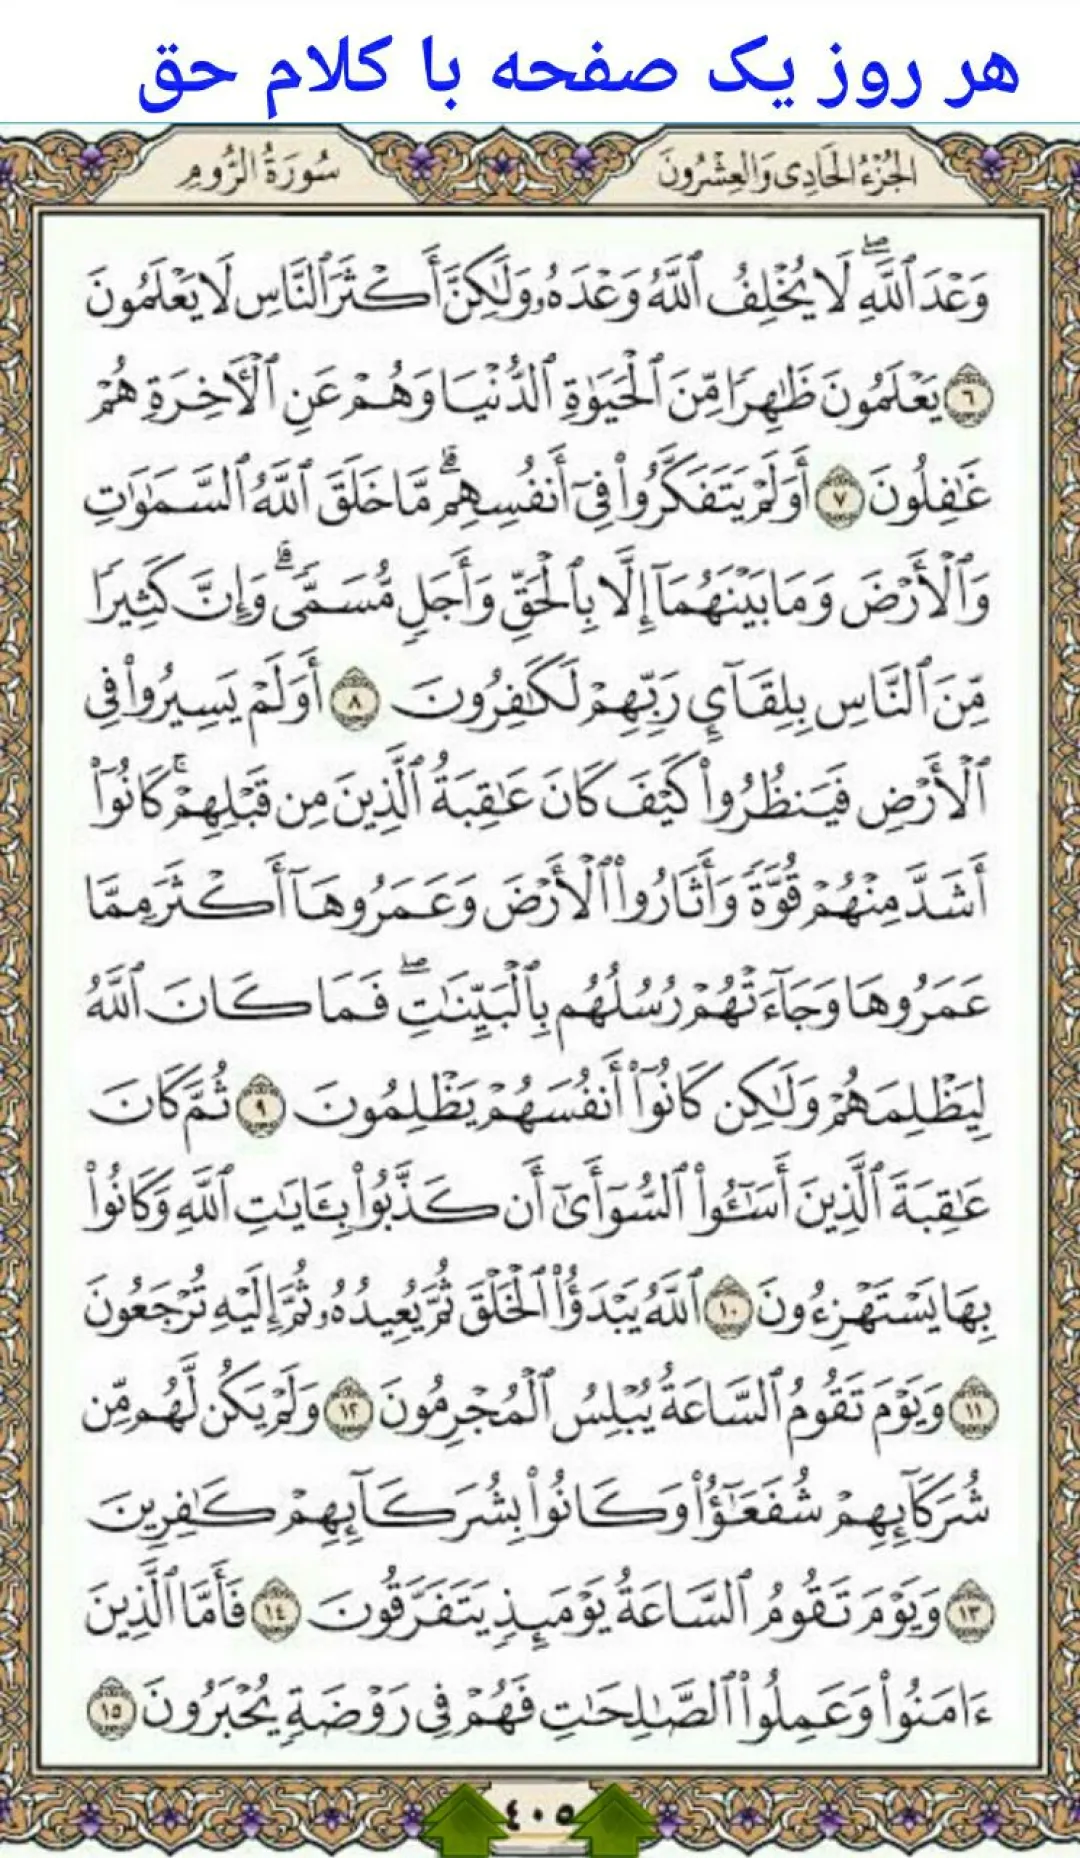 هر روز یک صفحه با کلام حق
الجُزْءُ الحَادِى وَالعِشْرُونَ
سُورَةُ الرُّومِ
وَعْدَ ٱللَّهِۖ لَا يُخْلِفُ ٱللَّهُ وَعْدَهُۥ وَلَٰكِنَّ أَكْثَرَ ٱلنَّاسِ لَا يَعْلَمُونَ
٦ يَعْلَمُونَ ظَٰهِرًا مِّنَ ٱلْحَيَوٰةِ ٱلدُّنْيَا وَهُمْ عَنِ ٱلْأَخِرَةِ هُمْ
غَٰفِلُونَ ٧ أَوَلَمْ يَتَفَكَّرُوا۟ فِىٓ أَنفُسِهِمۗ مَّا خَلَقَ ٱللَّهُ ٱلسَّمَٰوَٰتِ
وَٱلْأَرْضَ وَمَا بَيْنَهُمَآ إِلَّا بِٱلْحَقِّ وَأَجَلٍ مُّسَمًّىۗ وَإِنَّ كَثِيرًا
مِّنَ ٱلنَّاسِ بِلِقَآئِ رَبِّهِمْ لَكَٰفِرُونَ ٨ أَوَلَمْ يَسِيرُوا۟ فِى
ٱلْأَرْضِ فَيَنظُرُوا۟ كَيْفَ كَانَ عَٰقِبَةُ ٱلَّذِينَ مِن قَبْلِهِمْۚ كَانُوٓا۟
أَشَدَّ مِنْهُمْ قُوَّةً وَأَثَارُوا۟ ٱلْأَرْضَ وَعَمَرُوهَآ أَكْثَرَ مِمَّا
عَمَرُوهَا وَجَآءَتْهُمْ رُسُلُهُم بِٱلْبَيِّنَٰتِۖ فَمَا كَانَ ٱللَّهُ
لِيَظْلِمَهُمْ وَلَٰكِن كَانُوٓا۟ أَنفُسَهُمْ يَظْلِمُونَ ٩ ثُمَّ كَانَ
عَٰقِبَةَ ٱلَّذِينَ أَسَٰٓـُٔوا۟ ٱلسُّوٓأَىٰٓ أَن كَذَّبُوا۟ بِـَٔايَٰتِ ٱللَّهِ وَكَانُوا۟
بِهَا يَسْتَهْزِءُونَ ١٠ ٱللَّهُ يَبْدَؤُا۟ ٱلْخَلْقَ ثُمَّ يُعِيدُهُۥ ثُمَّ إِلَيْهِ تُرْجَعُونَ
١١ وَيَوْمَ تَقُومُ ٱلسَّاعَةُ يُبْلِسُ ٱلْمُجْرِمُونَ ١٢ وَلَمْ يَكُن لَّهُم مِّن
شُرَكَآئِهِمْ شُفَعَٰٓؤُا۟ وَكَانُوا۟ بِشُرَكَآئِهِمْ كَٰفِرِينَ
١٣ وَيَوْمَ تَقُومُ ٱلسَّاعَةُ يَوْمَئِذٍ يَتَفَرَّقُونَ ١٤ فَأَمَّا ٱلَّذِينَ
ءَامَنُوا۟ وَعَمِلُوا۟ ٱلصَّٰلِحَٰتِ فَهُمْ فِى رَوْضَةٍ يُحْبَرُونَ ١٥
٤٠٥